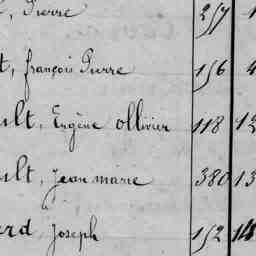 , Pierre 257
t, françois Pierre 156 4
ult, Eugène ollivier 118 12
ult, Jean marie 380 13
erd, Joseph 152 14